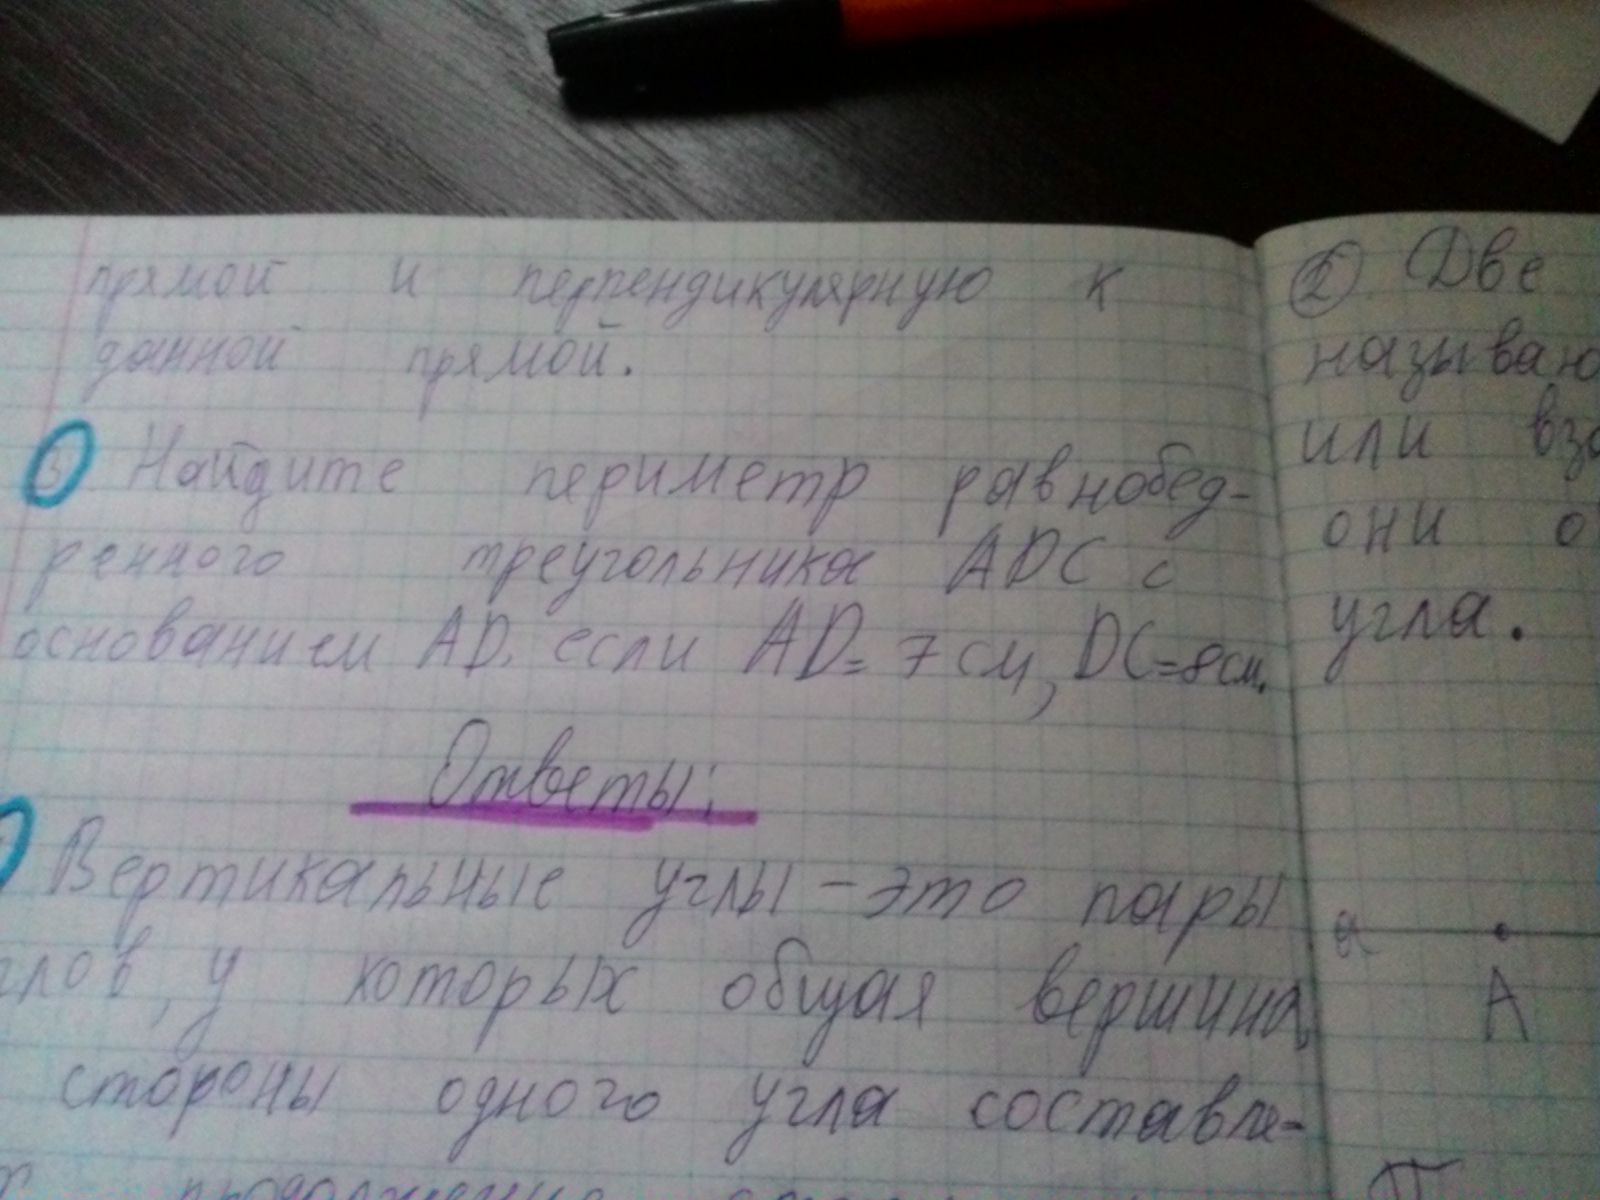 прямой и перпендикулярную к
данной прямой.
3 Найдите периметр равнобед-
ренного треугольника ADC с
основанием AD, если AD= 7 см, DC=8см.
Ответы:
Вертикальные углы – это пары
глов, у которых общая вершина,
стороны одного угла составля-
продолжение
② Две
называю
или вза
они о
угла.
a
A